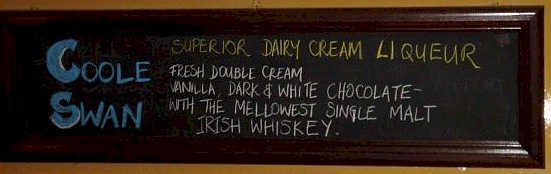 COOLE
SWAN
SUPERIOR DAIRY CREAM LIQUEUR
FRESH DOUBLE CREAM
VANILLA, DARK & WHITE CHOCOLATE-
WITH THE MELLOWEST SINGLE MALT
IRISH WHISKEY.